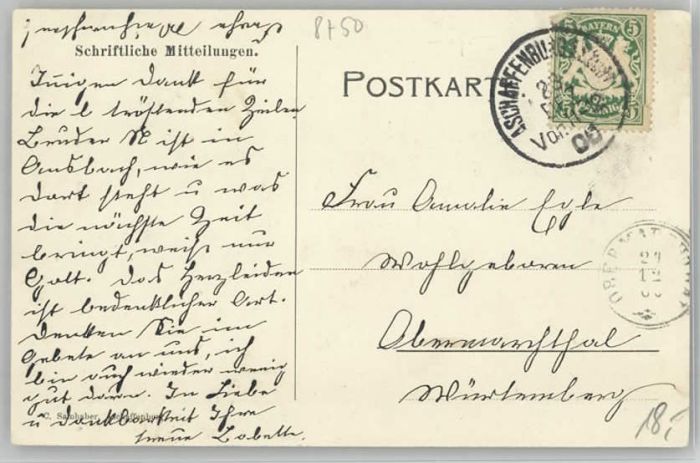 8450
Schriftliche Mitteilungen.
Innigen Dank für
die l tröstenden Zeilen
Bruder N ist in
Ansbach, wie es
dort steht u was
die nächste Zeit
bringt, weiß nur
Gott. Das Herzleiden
ist bedenklicher Art.
Denken Sie im
Gebete an uns, ich
bin auch wieder wenig
gut daran. In Liebe
u Dankbarkeit Ihre
treue Babette.
C. Samhaber, Aschaffenburg
POSTKART
BAYERN
5 5
ASCHAFFENBURG
Vorm
06
Frau Amalie Egle
Wohlgeboren
Obermarchthal
Würtemberg
OBERMARCHTHAL
18,